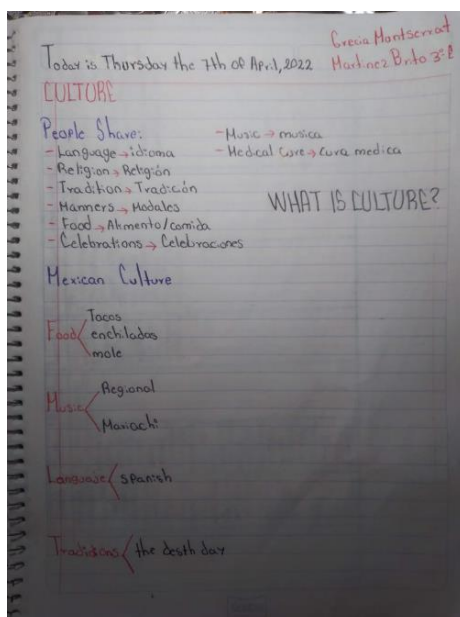 Grecia Montserrat
Martinez Brito 3°E
Today is Thursday the 7th of April, 2022
CULTURE
People Share:
- Language → idioma
- Religion → Religión
- Tradition → Tradición
- Manners → Modales
- Food → Alimento/comida
- Celebrations → Celebraciones
- Music → musica
- Medical Cure → cura medica
WHAT IS CULTURE?
Mexican Culture
Food
Tacos
enchiladas
mole
Music
Regional
Mariachi
Language
spanish
Traditions
the desth day